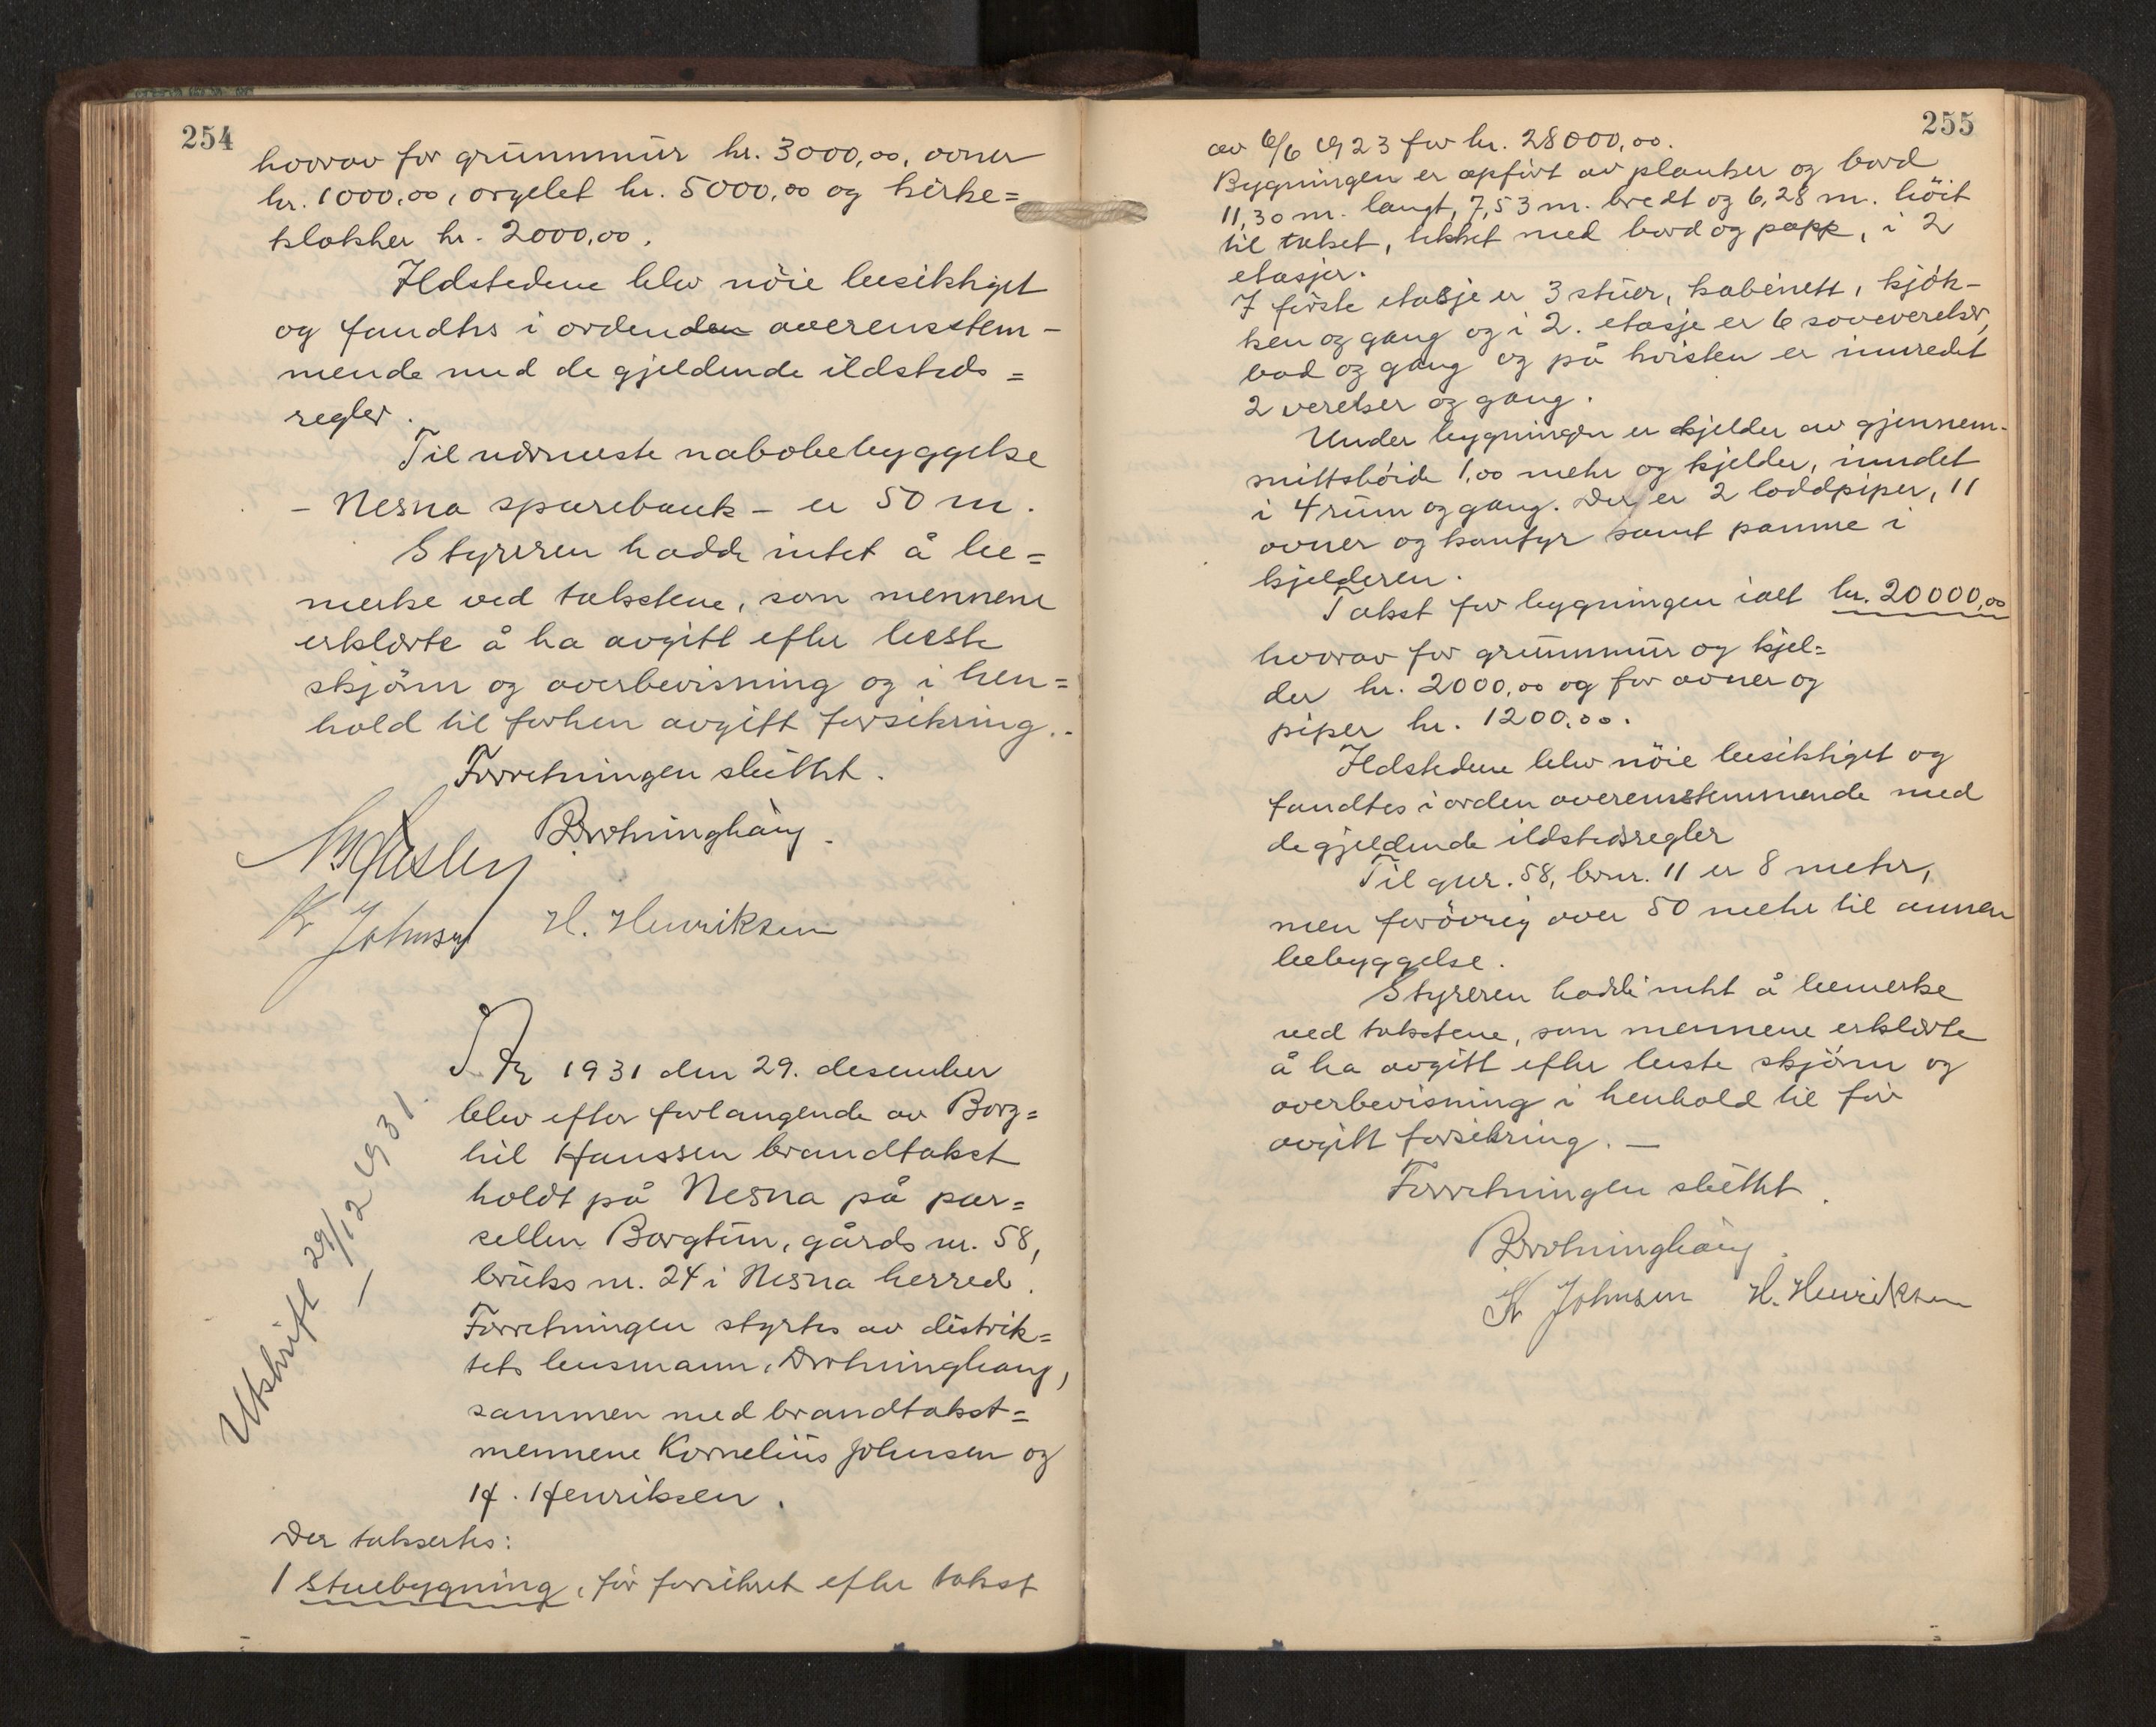 254
hvorav for grunnmur kr. 3000,00, ovner
kr. 1000,00, orgelet kr. 5000,00 og kirke=
klokker kr. 2000,00.
Ildstedene blev nöie besiktiget
og fandtes i orden den overensstem-
mende med de gjeldende ildsteds=
regler.
Til nærmeste nabobebyggelse
- Nesna sparebank - er 50 m.
Styreren hadde intet å be=
merke ved takstene, som mennene
erklærte å ha avgitt efter beste
skjönn og overbevisning og i hen=
hold til forhen avgitt forsikring.-
Forretningen sluttet.
Drotninghaug.
K Johnsen H. Henriksen
År 1931 den 29. desember
blev efter forlangende av Borg=
hil Hanssen brandtakst
holdt på Nesna på par=
sellen Borgtun, gårds nr. 58,
bruks nr. 24 i Nesna herred.
Forretningen styrtes av distrik=
tets lensmann, Drotninghaug,
sammen med brandtakst=
mennene Kornelius Johnsen og
H. Henriksen.
Utskrift 29/12 1931.
Der taksertes:
1 Stuebygning, för forsikret efter takst
255
av 6/6 1923 for kr. 28000,00.
Bygningen er opfört av planker og bord
11,30 m. langt, 7,53 m. bredt og 6,28 m. höit
til taket, tekket med bord og papp, i 2
etasjer.
I förste etasje er 3 stuer, kabinett, kjök-
ken og gang og i 2. etasje er 6 soveverelser,
bad og gang og på kvisten er innredet
2 verelser og gang.
Under bygningen er kjelder av gjennem-
snittshöide 1,00 meter og kjelder, inndelt
i 4 rum og gang. Der er 2 loddpiper, 11
ovner og komfyr samt panne i
kjelderen.
Takst for bygningen ialt kr. 20000,00
hvorav for grunnmur og kjel=
der kr. 2000,00 og for ovner og
piper kr. 1200,00.
Ildstedene blev nöie besiktiget og
fandtes i orden overensstemmende med
de gjeldende ildstedsregler
Til gnr. 58, brnr. 11 er 8 meter,
men forövrig over 50 meter til annen
bebyggelse.
Styreren hadde intet å bemerke
ved takstene, som mennene erklærte
å ha avgitt efter beste skjönn og
overbevisning i henhold til för
avgitt forsikring. —
Forretningen sluttet.
Drotninghaug.
K Johnsen H. Henriksen